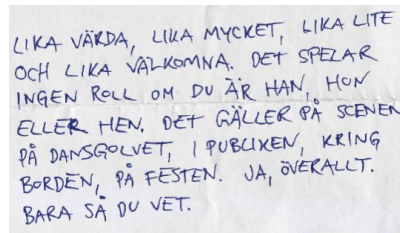 LIKA VÄRDA, LIKA MYCKET, LIKA LITE
OCH LIKA VÄLKOMNA. DET SPELAR
INGEN ROLL OM DU ÄR HAN, HON
ELLER HEN. DET GÄLLER PÅ SCENEN
PÅ DANSGOLVET, I PUBLIKEN, KRING
BORDEN, PÅ FESTEN. JA, ÖVERALLT.
BARA SÅ DU VET.